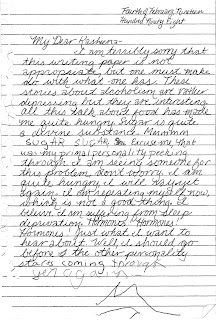 Fourth of February Nineteen
Hundred Ninety Eight
My Dear Rasheena-
I am terribly sorry that
this writing paper if not
appropriate but one must make
do with what one has. These
stories about alcoholism are rather
depressing but they are interesting
all this talk about food has made
me quite hungry. Sugar is quite
a devine substance. Mmmmm
SUGAR SUGAR, Excuse me that
was my primal personality peeking
through. I am seeing someone for
this problem, dont worry. I am
quite hungry it will say yet
again. I am repeating myself now,
which is not a good thing. I
beleive I am suffering from sleep
deprivation. Hormones Hormones!
Hormones! Just what I want to
hear about. Well I should go
before is the other personality
starts coming through
yet again